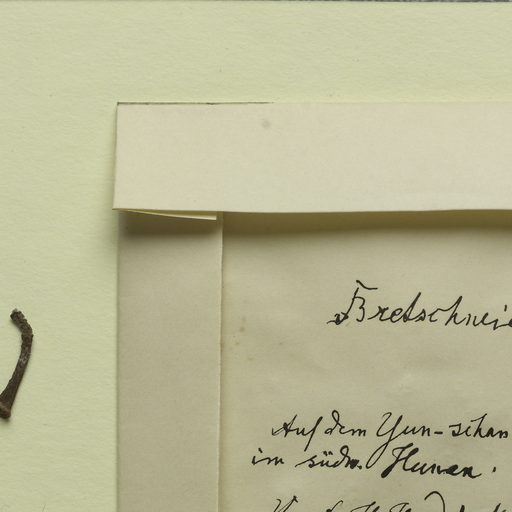 Bretschnei
Auf dem Yun-schan
im südw. Hunan.